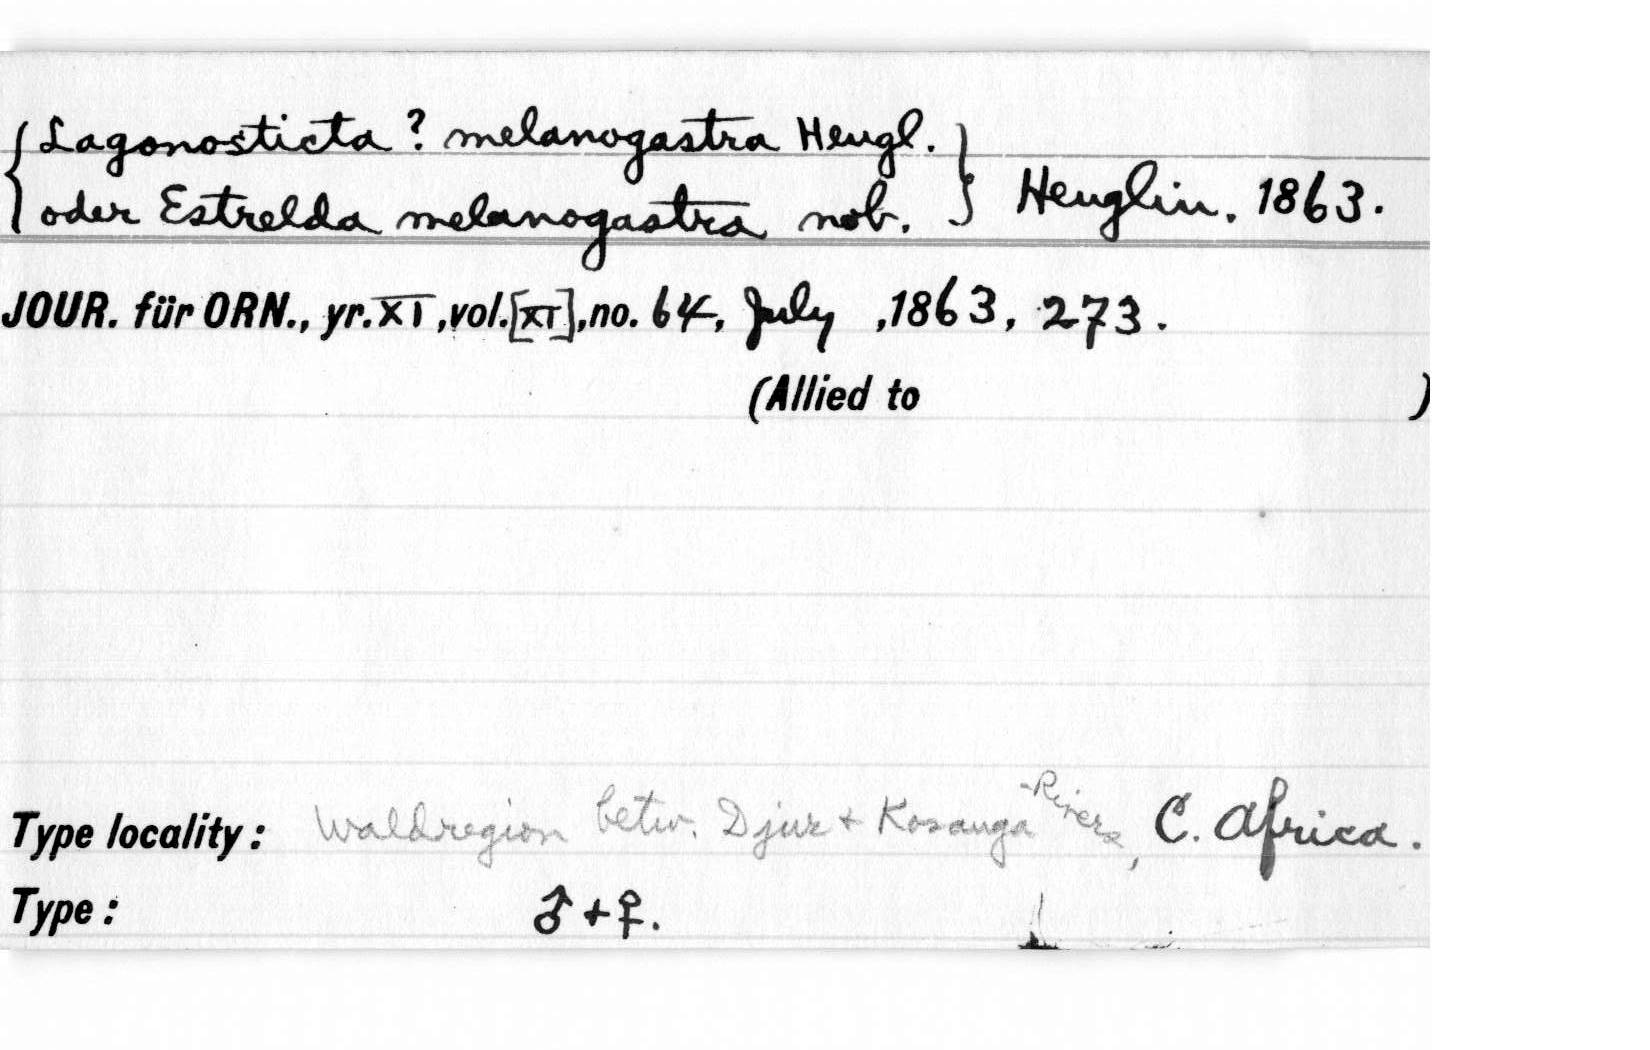 { Lagonosticta ? melanogastra Heugl. }
{ oder Estrelda melanogastra nob. } Heuglin. 1863.
JOUR. für ORN., yr. XI, vol. [XI], no. 64, July, 1863, 273.
(Allied to )
Type locality: Waldregion betw. Djur + Kosanga-Rivers, C. Africa.
Type: ♂ + ♀.